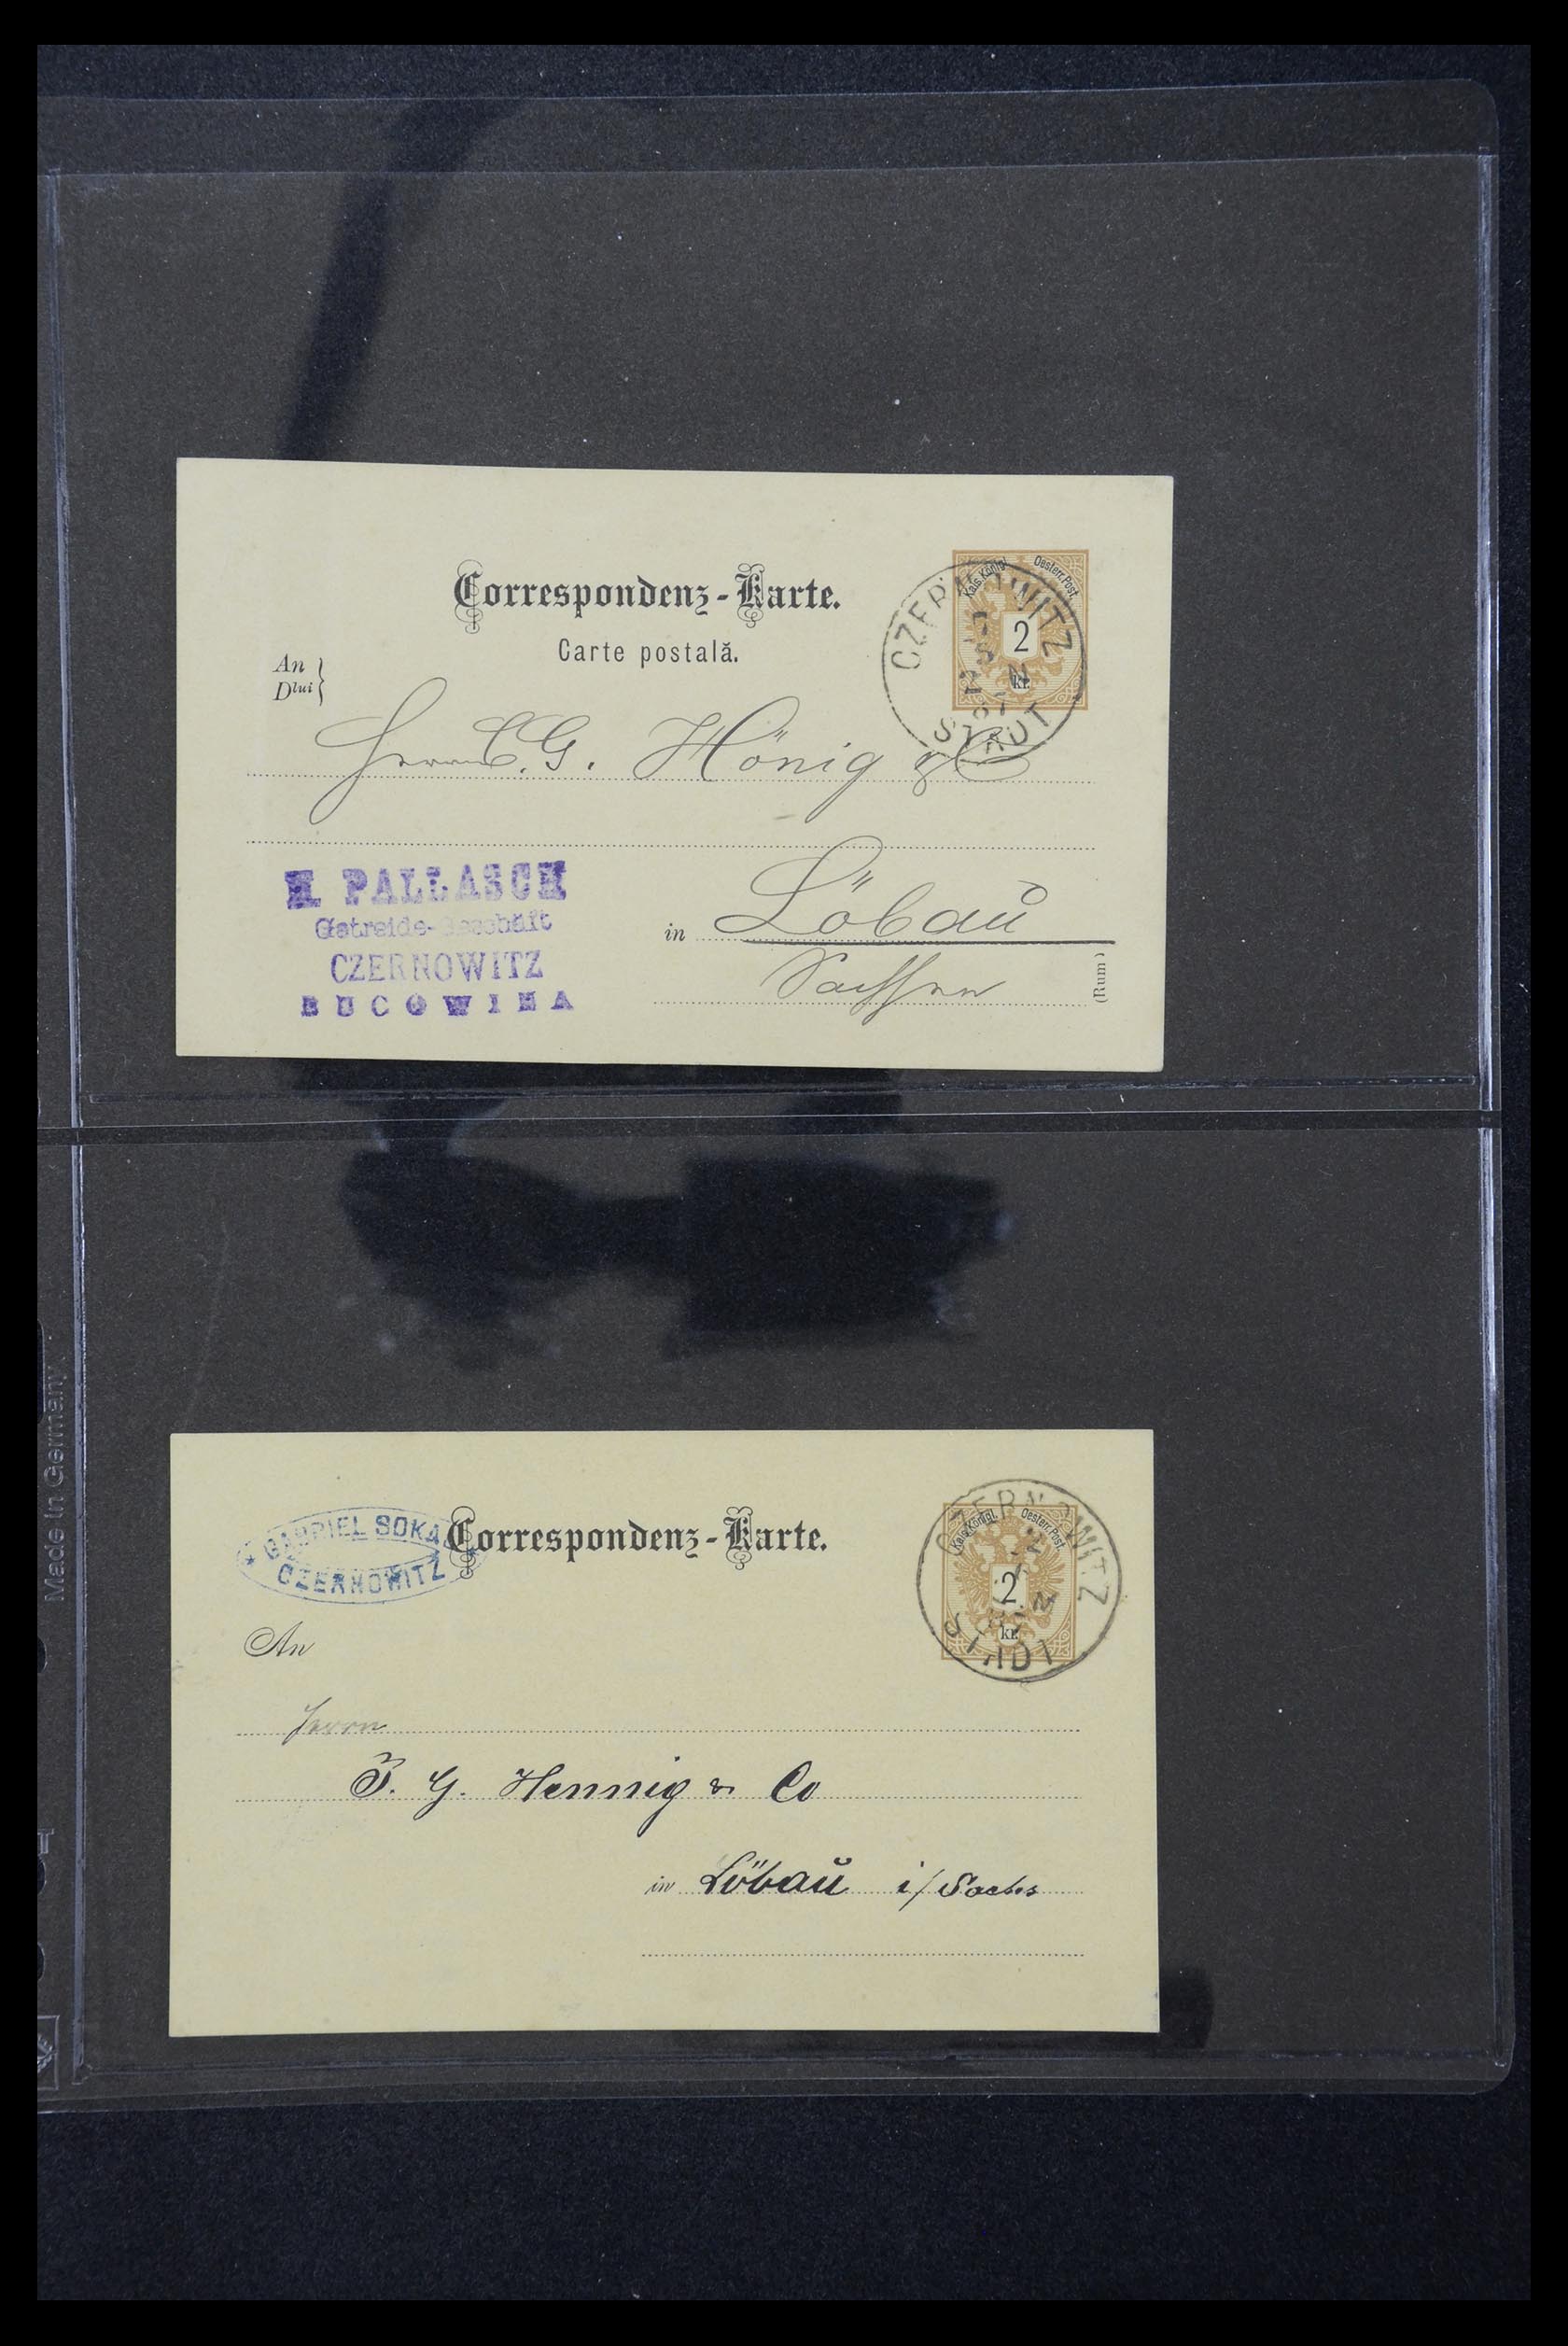 Correspondenz-Karte.
Carte postală.
Kais. Königl. Oesterr. Post.
2
kr.
CZERNOWITZ
STADT
An
Dlui
Herrn C. G. Hönig & C
in Löbau
Sachsen
(Rum.)
PALLASCH
Getreide-Geschäft
CZERNOWITZ
BUCOWINA
Made in Germany
GABRIEL SOKA
CZERNOWITZ
Correspondenz-Karte.
Kais. Königl. Oesterr. Post.
2
kr.
CZERNOWITZ
STADT
An
Herrn
J. G. Hennig & Co
in Löbau i/Sachs